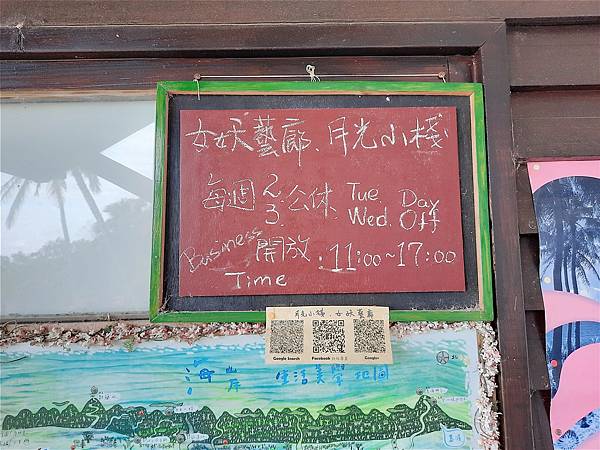 女妖藝廊、月光小棧
每週2.3.公休 Tue Wed. Day Off
Business Time 開放:11:00~17:00
月光小棧.女妖藝廊
Google Search Facebook
海岸 生活美學地圖